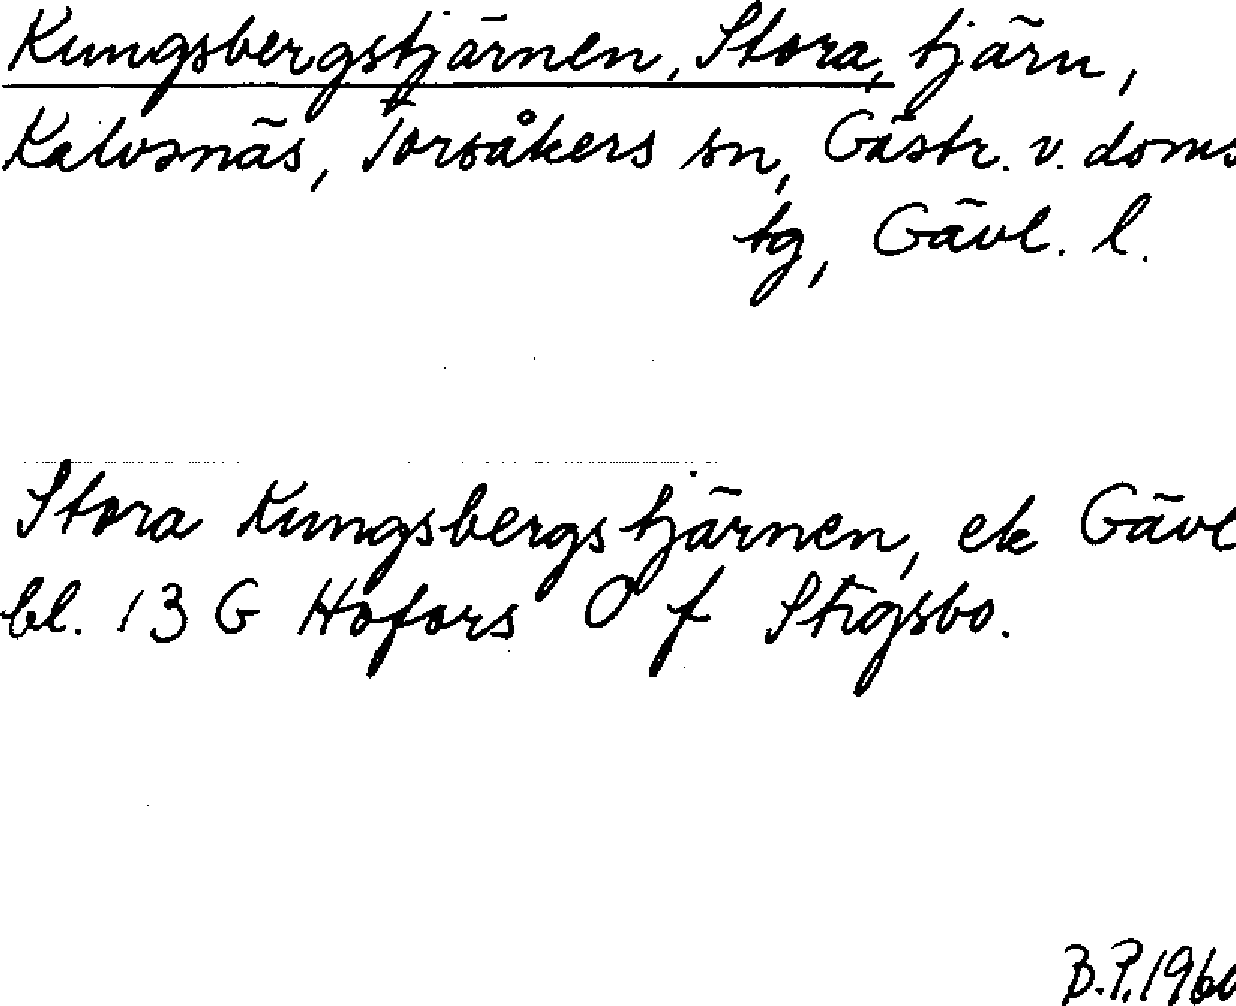 Kungsbergstjärnen, Stora, tjärn,
Kalvsnäs, Torsåkers sn, Gästr. v. doms
tg, Gävl. l.
Stora Kungsbergstjärnen, ek Gävl
bl. 13 G Hofors O f Stigsbo.
B.P. 1960